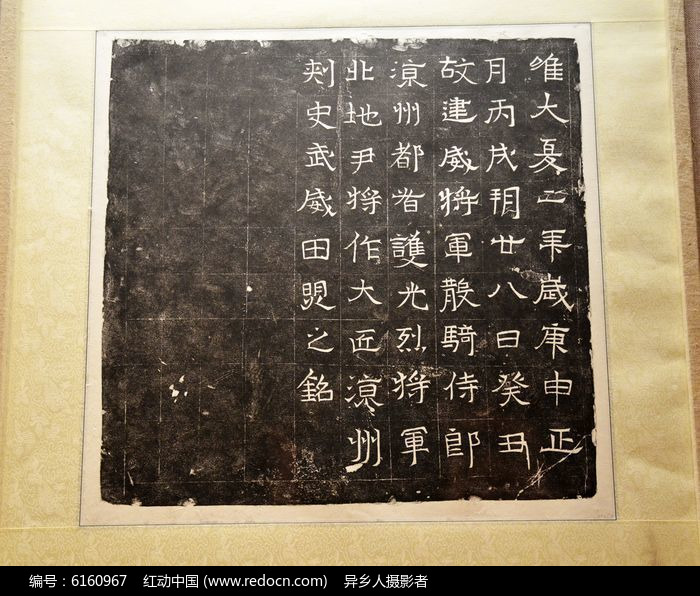 唯大夏二年歲庚申正
月丙戌朔廿八日癸丑
故建威將軍散騎侍郎
涼州都督護光烈將軍
北地尹將作大匠涼州
刺史武威田煚之銘
编号：6160967 红动中国 (www.redocn.com) 异乡人摄影者